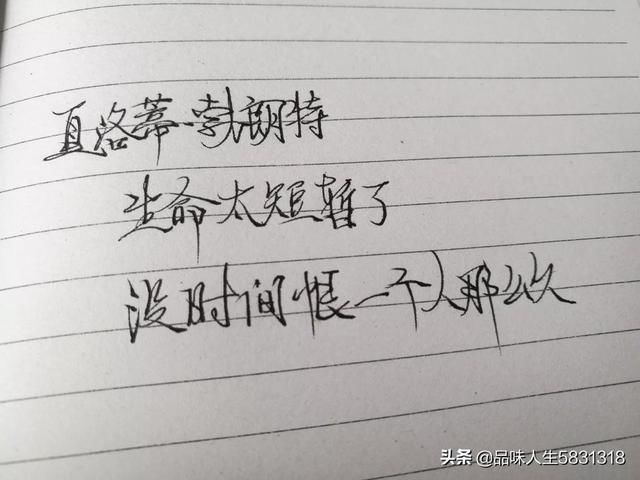 夏洛蒂·勃朗特
生命太短暂了
没时间恨一个人那么久
头条 @品味人生5831318